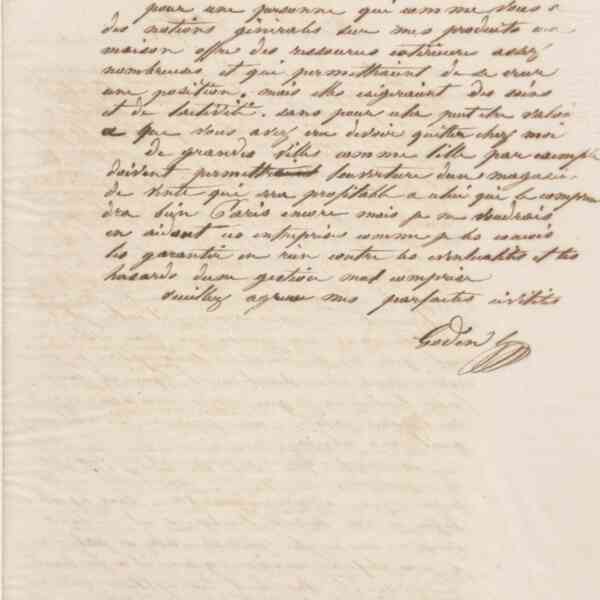 pour une personne qui comme vous a
des notions générales sur mes produits ma
maison offre des ressources extérieures assez
nombreuses et qui permettraient de se créer
une position. mais elles exigeraient des soins
et de l'activité. sans pour cela peut etre valoir
ce que vous avez cru devoir quitter chez moi
de grandes villes comme lille par exemple
doivent permettre l'ouverture d'un magasin
de vente qui sera profitable a celui qui le compren
dra bien Paris encore mais je ne voudrais
en aidant ces entreprises comme je les conçois
les garantir en rien contre les eventualités et les
hasards d'une gestion mal comprise
veuillez agréer mes parfaites civilités
Godin